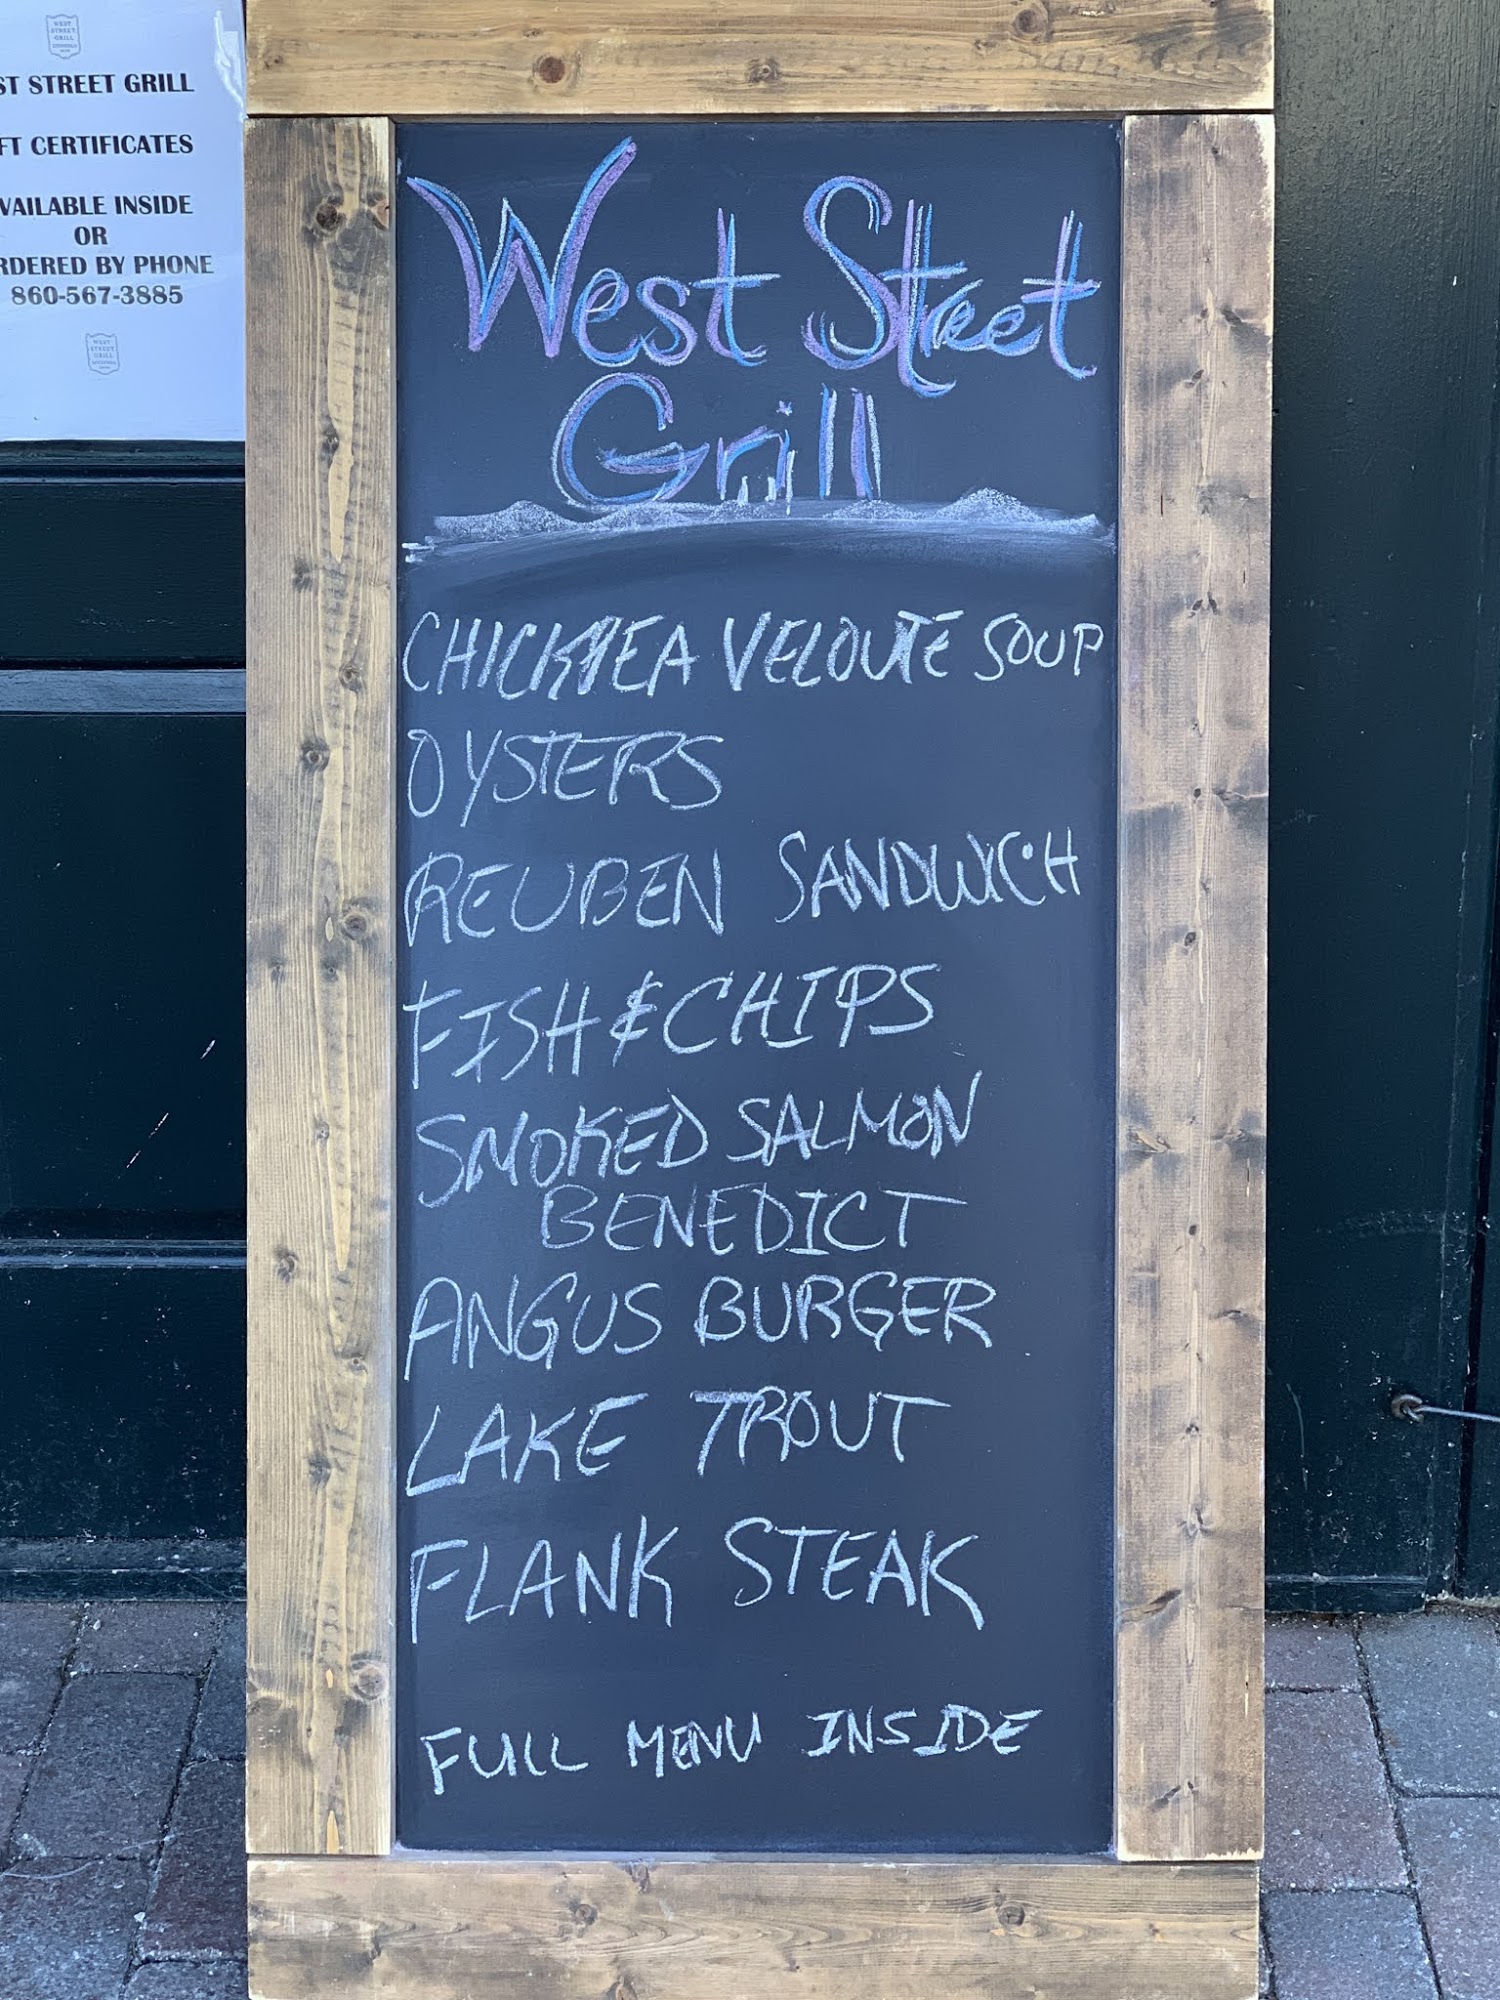 WEST
STREET
GRILL
ST STREET GRILL
FT CERTIFICATES
VAILABLE INSIDE
OR
RDERED BY PHONE
860-567-3885
WEST
STREET
GRILL
West Street
Grill
CHICKPEA VELOUTÉ SOUP
OYSTERS
REUBEN SANDWICH
FISH & CHIPS
SMOKED SALMON
BENEDICT
ANGUS BURGER
LAKE TROUT
FLANK STEAK
FULL MENU INSIDE